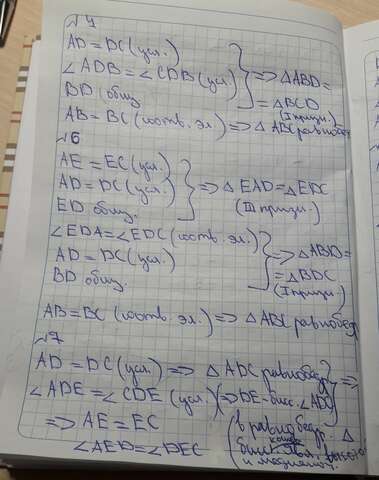 №4
AD = DC (усл.)
∠ADB = ∠CDB (усл) } => △ABD =
BD общ. = △BCD
(I призн.)
AB = BC (соотв. эл.) => △ABC равнобед
№6
AE = EC (усл.)
AD = DC (усл.) } => △EAD = △EDC
ED общ. (III призн.)
∠EDA = ∠EDC (соотв. эл.)
AD = DC (усл.) } => △ABD =
BD общ. = △BDC
(I призн.)
AB = BC (соотв. эл.) => △ABC равнобед.
№7
AD = DC (усл.) => △ADC равнобед.
∠ADE = ∠CDE (усл.) (=> DE - бисс. ∠ADC } =>
=> AE = EC
∠AED = ∠DEC
(в равнобедр. △
бисс. явл. высотой
и медианой.